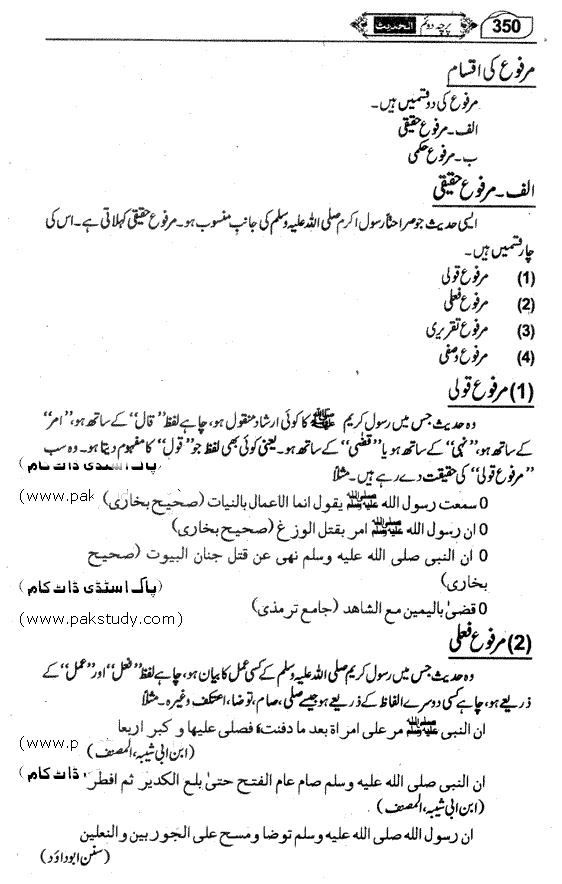 350 پرچہ دوئم الحدیث
مرفوع کی اقسام
مرفوع کی دو قسمیں ہیں۔
الف۔ مرفوع حقیقی
ب۔ مرفوع حکمی
الف۔ مرفوع حقیقی
ایسی حدیث جو صراحتاً رسول اکرم صلی اللہ علیہ وسلم کی جانب منسوب ہو۔ مرفوع حقیقی کہلاتی ہے۔ اس کی
چار قسمیں ہیں۔
(1) مرفوع قولی
(2) مرفوع فعلی
(3) مرفوع تقریری
(4) مرفوع وصفی
(1) مرفوع قولی
وہ حدیث جس میں رسول کریم ﷺ کا کوئی ارشاد منقول ہو، چاہے لفظ ”قال“ کے ساتھ ہو، ”امر“
کے ساتھ ہو، ”نہی“ کے ساتھ ہو یا ”قضٰی“ کے ساتھ ہو۔ یعنی کوئی بھی لفظ جو ”قول“ کا مفہوم دیتا ہو۔ وہ سب
”مرفوع قولی“ کی حقیقت دے رہے ہیں۔ مثلاً
پاک اسٹڈی ڈاٹ کام
0 سمعت رسول الله ﷺ يقول انما الاعمال بالنيات (صحیح بخاری)
(www.pak
0 ان رسول الله ﷺ امر بقتل الوزغ (صحیح بخاری)
0 ان النبی صلی الله عليه وسلم نهى عن قتل جنان البيوت (صحیح
بخاری)
(پاک اسٹڈی ڈاٹ کام)
0 قضىٰ باليمين مع الشاهد (جامع ترمذی)
(www.pakstudy.com)
(2) مرفوع فعلی
وہ حدیث جس میں رسول کریم صلی اللہ علیہ وسلم کے کسی عمل کا بیان ہو، چاہے لفظ ”فعل“ اور ”عمل“ کے
ذریعے ہو، چاہے کسی دوسرے الفاظ کے ذریعے ہو جیسے صلی، صام، توضا، اعتکف وغیرہ۔ مثلاً
ان النبی ﷺ مر علی امراة بعد ما دفنت، فصلی علیها و کبر اربعا
(www.p
(ابن ابی شیبہ، المصنف)
ان النبی صلی الله علیه وسلم صام عام الفتح حتیٰ بلغ الکدیر ثم افطر
ڈاٹ کام)
(ابن ابی شیبہ، المصنف)
ان رسول الله صلی الله علیه وسلم توضا ومسح علی الجوربین والنعلین
(سنن ابوداؤد)